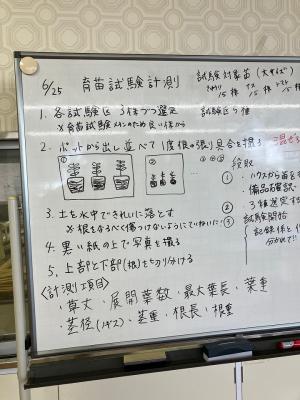 6/25 育苗試験計測
試験対象苗(大サイズ)
きゅうり ナス トマト
15株 15株 15株
試験区5種
1. 各試験区 3株づつ選定
※育苗試験メインのため良い株から
2. ポットから出し並べて1度根の張り具合を撮る
① ②
段取
① ハウスから苗を
備品確認
② 3種選定
③ 試験開始
記録係と
分かれて
3. 土を水中できれいに落とす
※根をなるべく傷つけないようにていねいに
4. 黒い紙の上で写真を撮る
5. 上部と下部(根)を切り分ける
〈計測項目〉
・草丈・展開葉数・最大葉長・葉重
・茎径(ノギス)・茎重・根長・根重